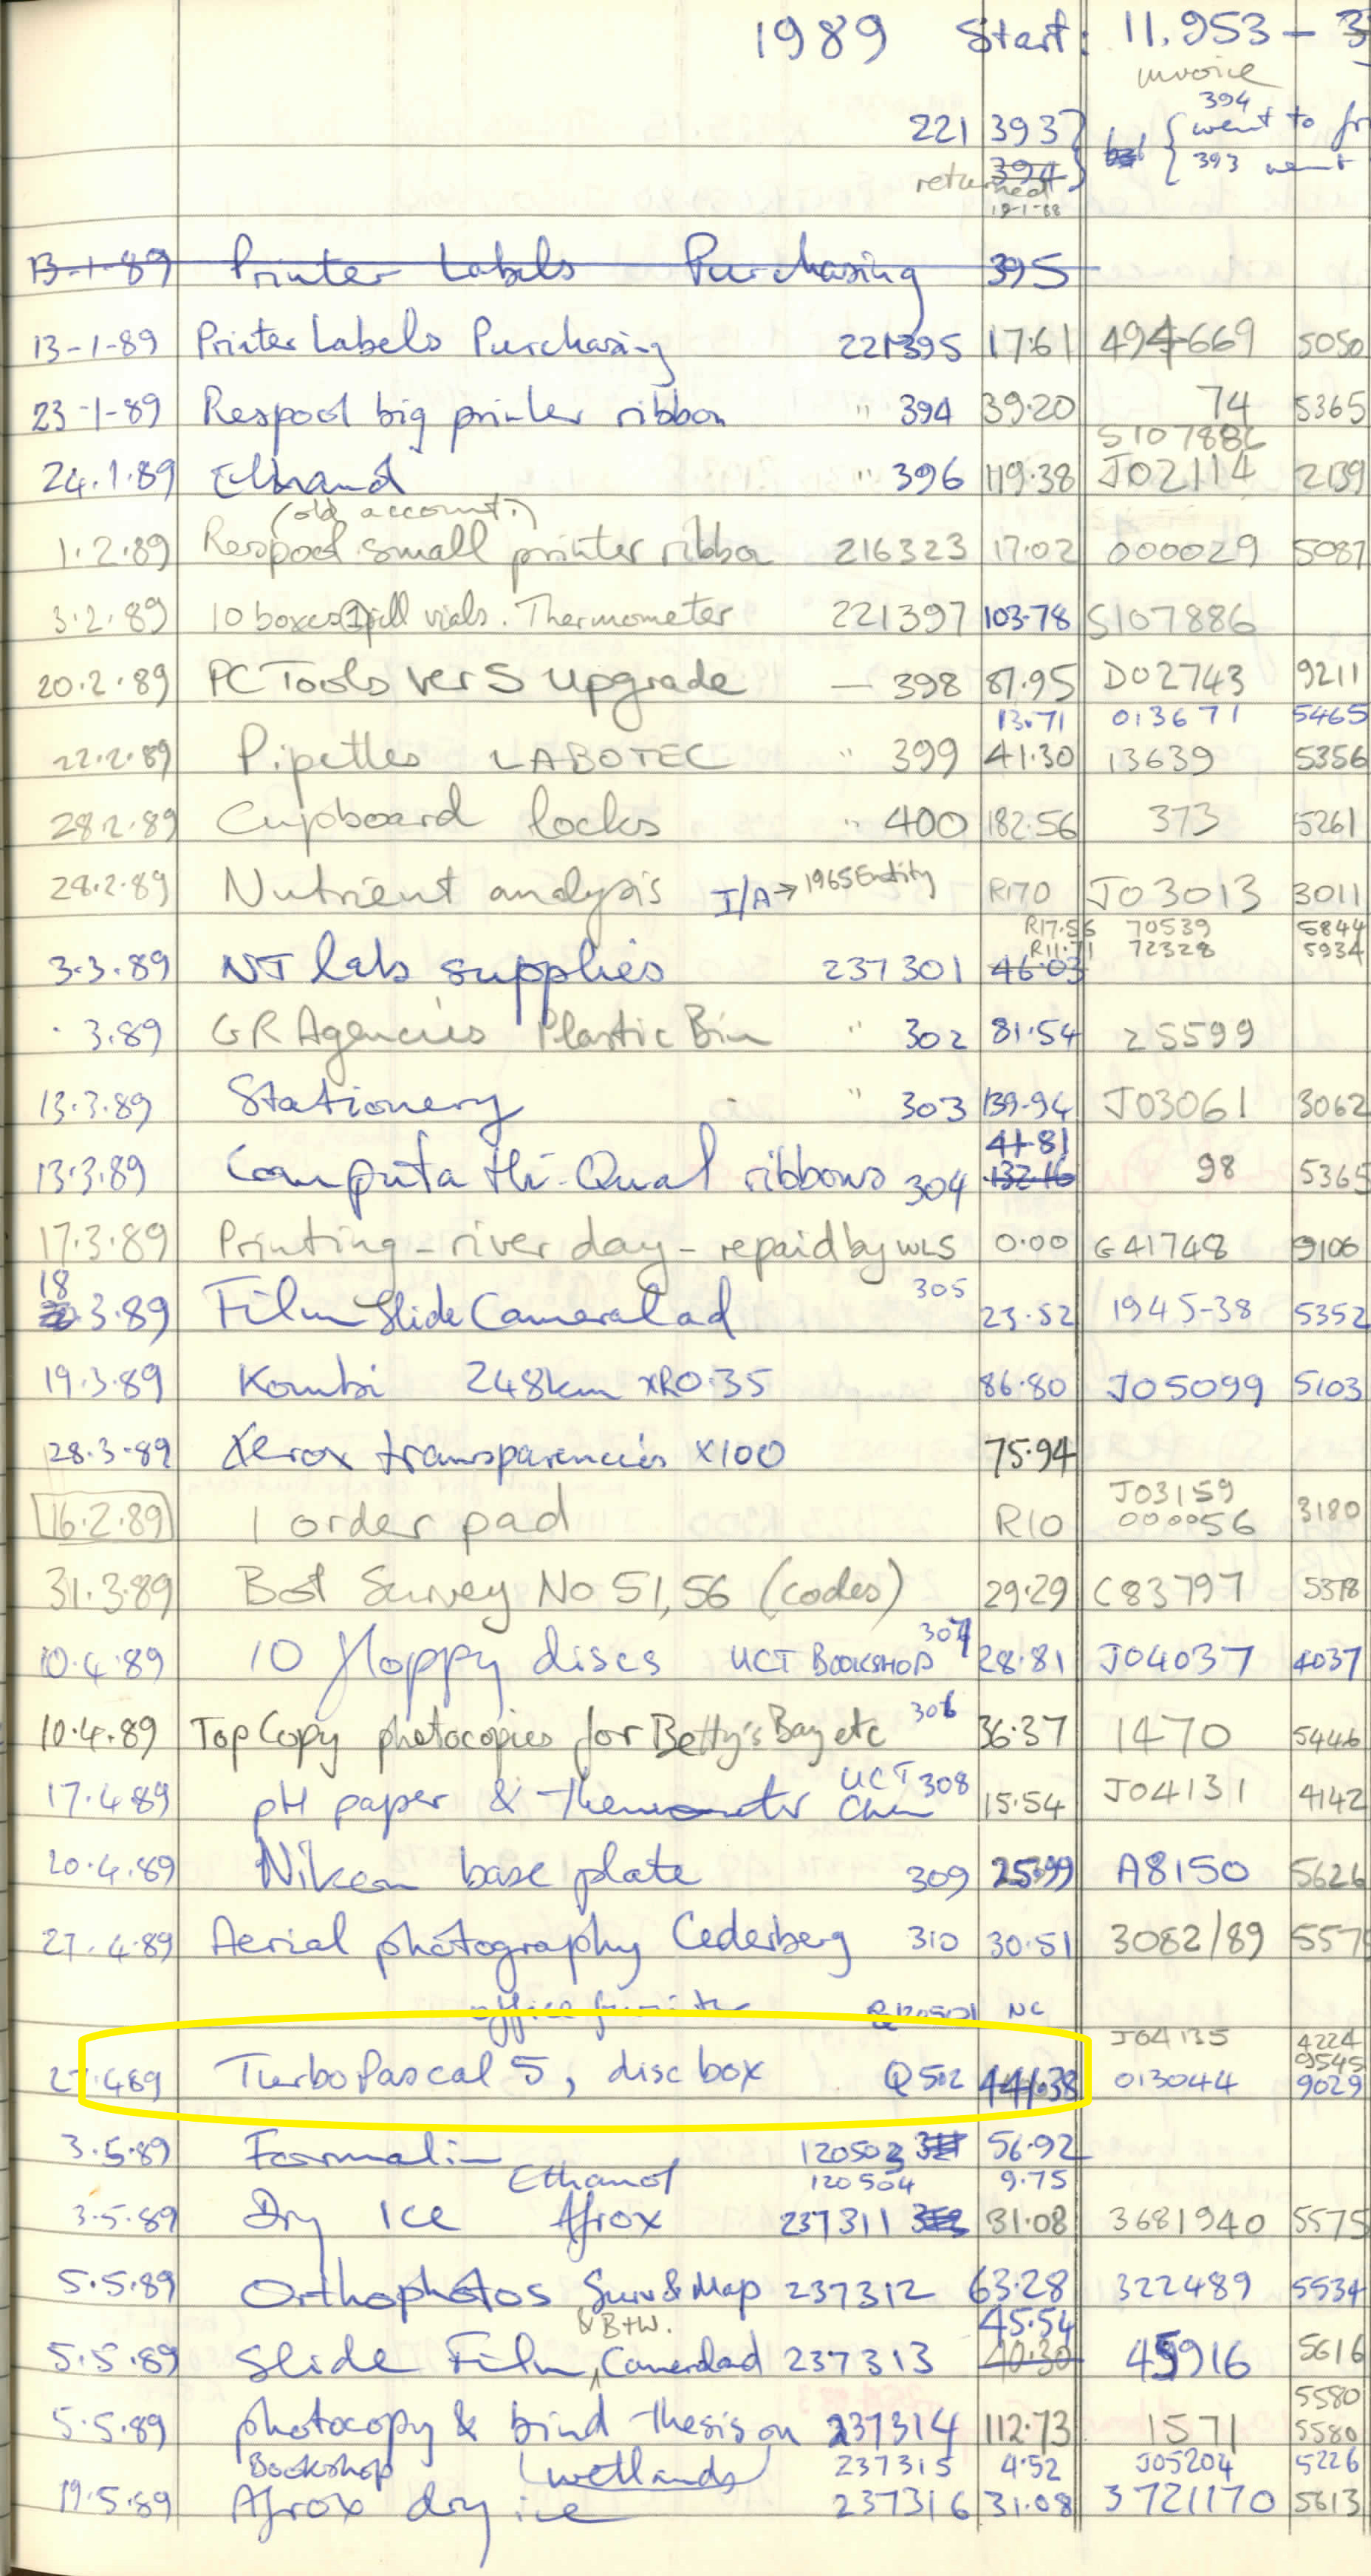 1989 Start: 11,953 -
invoice
221 393 394 went to
394 393 went
returned
13-1-89 Printer Labels Purchasing 395
13-1-89 Printer Labels Purchasing 221395 17.61 494669 5050
23-1-89 Respool big printer ribbon " 394 39.20 74 5365
S107886
24.1.89 " 396 119.38 J02114 2139
(old account.)
1.2.89 Respool small printer ribbo 216323 17.02 000029 5087
3.2.89 10 boxes pill vials. Thermometer 221397 103-78 S107886
20.2.89 PC Tools ver 5 upgrade — 398 87.95 D02743 9211
13.71 013671 5465
22.2.89 Pipettes LABOTEC " 399 41.30 13639 5356
28.2.89 Cupboard locks " 400 182.56 373 5261
28.2.89 Nutrient analysis I/A → 1965 Entity R170 J03013 3011
R17.56 70539 5844
R11.71 72328 5934
3.3.89 NT lab supplies 237301 46.03
3.89 GR Agencies Plastic Bin " 302 81.54 25599
13.3.89 Stationery " 303 139-94 J03061 3062
41.81
13.3.89 Computa Hi-Qual ribbons 304 132.16 98 5365
17.3.89 Printing - river day - repaid by WLS 0.00 G41748 9106
18 305
3.89 Film Slide Cameraland 23.52 1945-38 5352
19.3.89 Kombi 248km xR0.35 86.80 J05099 5103
28.3.89 Xerox transparencies x100 75.94
J03159
16.2.89 1 order pad R10 000056 3180
31.3.89 Bot Survey No 51, 56 (codes) 29.29 C83797 5378
10.4.89 10 floppy discs UCT BOOKSHOP 307 28.81 J04037 4037
10.4.89 Top Copy photocopies for Betty's Bay etc 306 36.37 1470 5446
17.4.89 pH paper & thermometer UCT Chem 308 15.54 J04131 4142
20.4.89 Nikon base plate 309 25.99 A8150 5626
27.4.89 Aerial photography Cederberg 310 30.51 3082/89 557
office NC
J04135 4224
9545
27.4.89 Turbo Pascal 5, disc box Q502 441.38 013044 9029
3.5.89 Formalin 120503 56.92
Ethanol 120504 9.75
3.5.89 Dry Ice Afrox 237311 31.08 3681940 5575
5.5.89 Orthophotos Surv & Map 237312 63.28 322489 5534
& B+W. 45.54
5.5.89 Slide Film, Cameraland 237313 40.30 45916 5616
5580
5.5.89 photocopy & bind thesis on 237314 112.73 1571 5580
Bookshop (wetlands) 237315 4.52 J05204 5226
19.5.89 Afrox dry ice 237316 31.08 3721170 5613